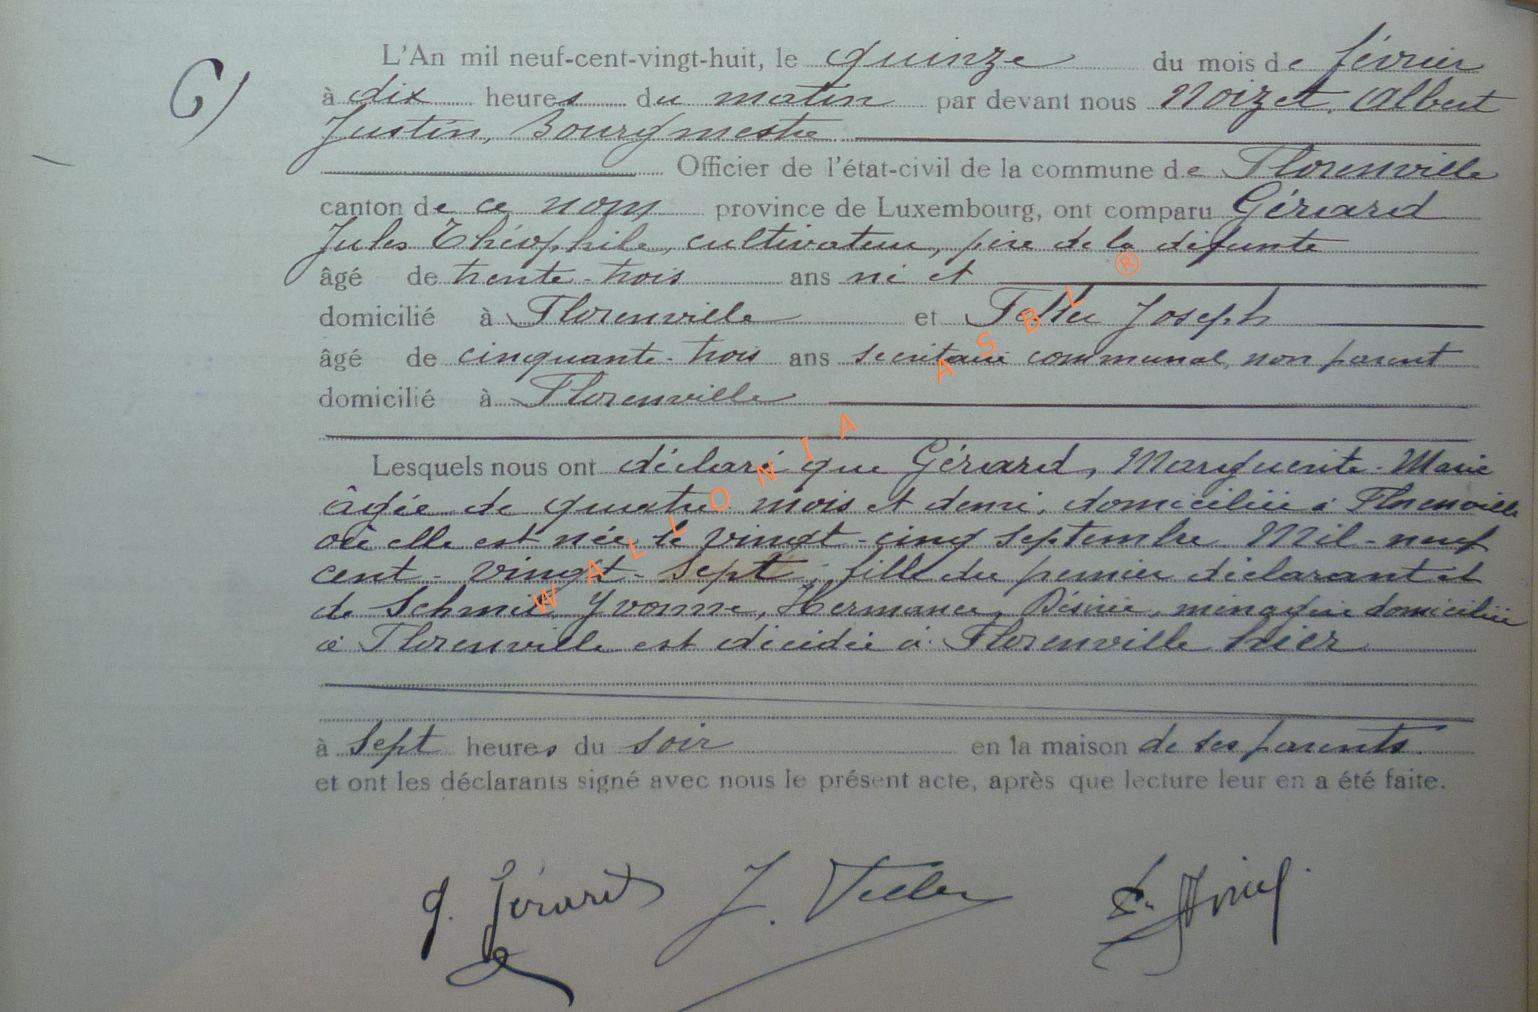 6)
L'An mil neuf-cent-vingt-huit, le quinze du mois de février
à dix heures du matin par devant nous Noizet, Albert
Justin, Bourgmestre
Officier de l'état-civil de la commune de Florenville
canton de ce nom province de Luxembourg, ont comparu Gérard
Jules Théophile, cultivateur, père de la défunte
âgé de trente-trois ans ni et
domicilié à Florenville et Joseph
âgé de cinquante-trois ans secrétaire communal, non parent
domicilié à Florenville
Lesquels nous ont déclaré que Gérard, Marguerite-Marie
âgée de quatre mois et demi, domiciliée à Florenville
où elle est née le vingt-cinq septembre Mil-neuf
cent-vingt-sept, fille du premier déclarant et
de Yvonne, Hermance, Désirée, ménagère domiciliée
à Florenville est décédée à Florenville hier
à sept heures du soir en la maison de ses parents.
et ont les déclarants signé avec nous le présent acte, après que lecture leur en a été faite.
J. Gérard J.
WALLONIA ASBL ®